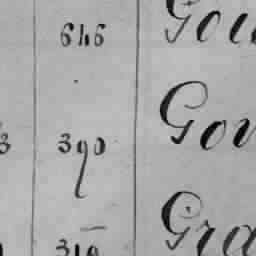 646 Gou
3 390 Gou
310 Gra